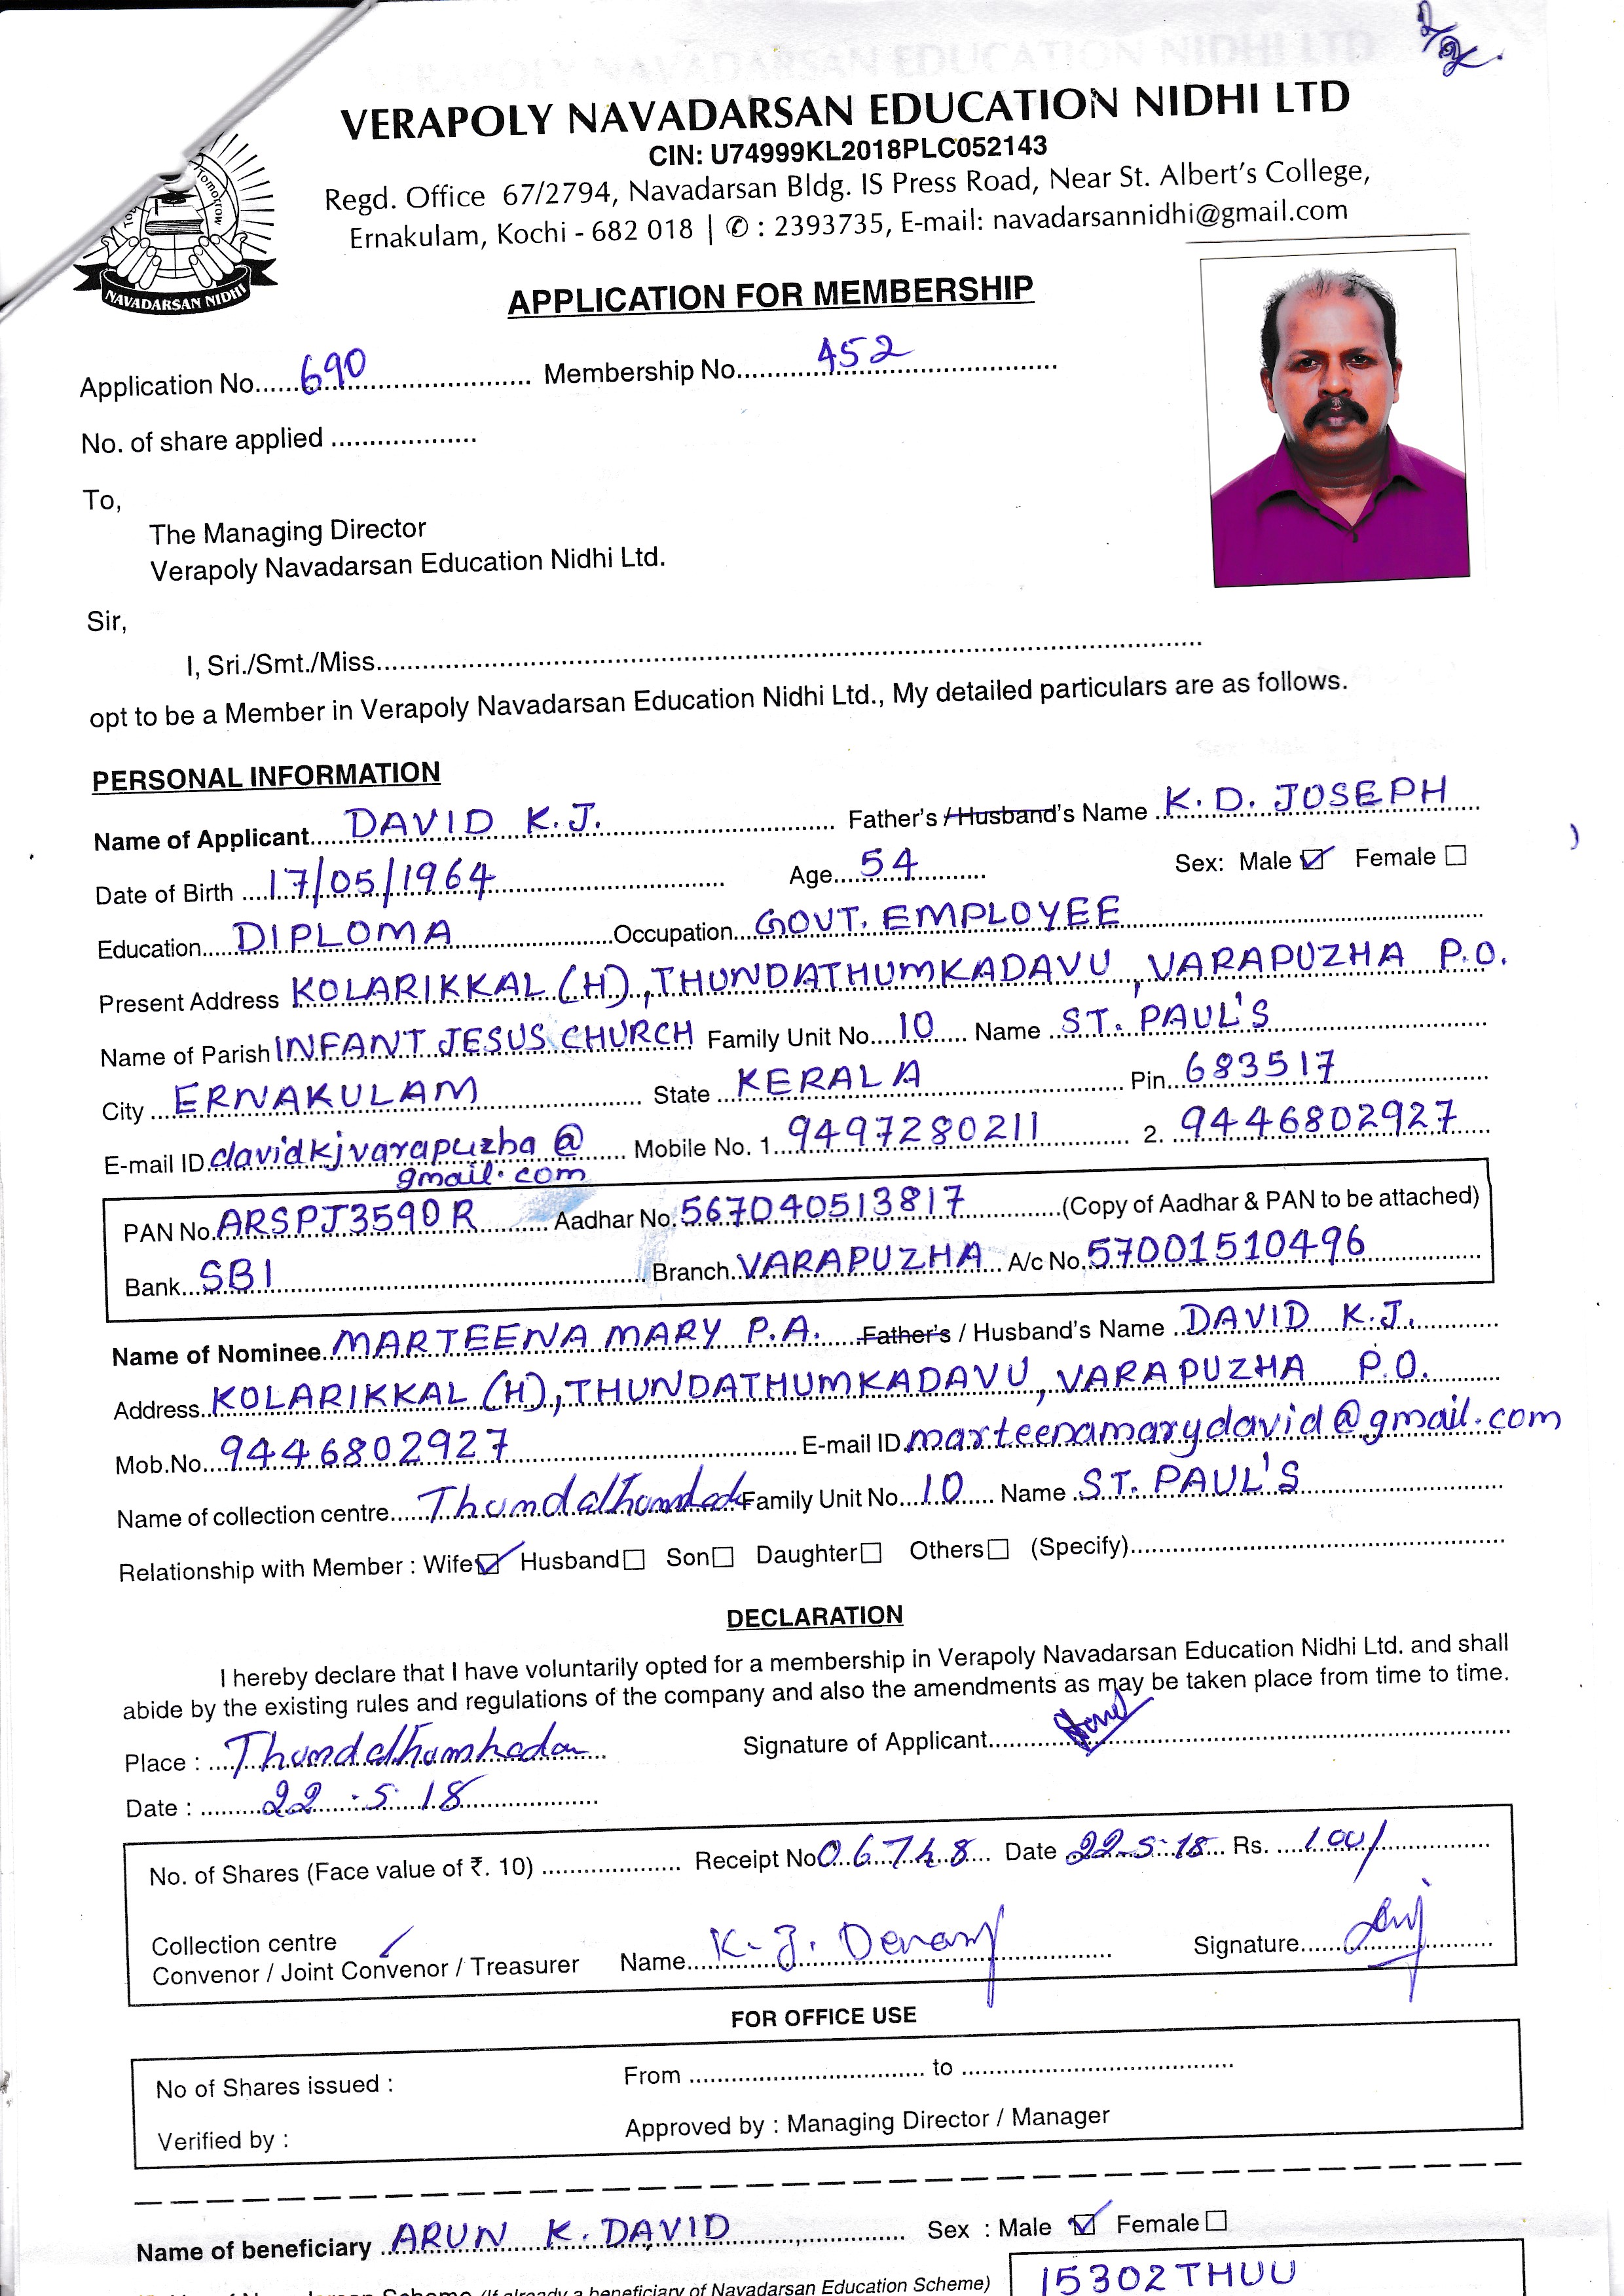 VERAPOLY NAVADARSAN EDUCATION NIDHI LTD
CIN: U74999KL2018PLC052143
Regd. Office 67/2794, Navadarsan Bldg. IS Press Road, Near St. Albert's College,
Ernakulam, Kochi - 682 018 | ✆ : 2393735, E-mail: navadarsannidhi@gmail.com
Tomorrow
NAVADARSAN NIDHI
APPLICATION FOR MEMBERSHIP
Application No. 690 Membership No. 452
No. of share applied
To,
The Managing Director
Verapoly Navadarsan Education Nidhi Ltd.
Sir,
I, Sri./Smt./Miss
opt to be a Member in Verapoly Navadarsan Education Nidhi Ltd., My detailed particulars are as follows.
PERSONAL INFORMATION
Name of Applicant DAVID K.J. Father's / Husband's Name K.D. JOSEPH
Date of Birth 17/05/1964 Age 54 Sex: Male ☑ Female ☐
Education DIPLOMA Occupation GOVT. EMPLOYEE
Present Address KOLARIKKAL (H), THUNDATHUMKADAVU, VARAPUZHA P.O.
Name of Parish INFANT JESUS CHURCH Family Unit No. 10 Name ST. PAUL'S
City ERNAKULAM State KERALA Pin 683517
E-mail ID davidkjvarapuzha @ Mobile No. 1 9497280211 2. 9446802927
gmail.com
PAN No. ARSPJ3590R Aadhar No. 567040513817 (Copy of Aadhar & PAN to be attached)
Bank SBI Branch VARAPUZHA A/c No. 57001510496
Name of Nominee MARTEENA MARY P.A. Father's / Husband's Name DAVID K.J.
Address KOLARIKKAL (H), THUNDATHUMKADAVU, VARAPUZHA P.O.
Mob.No. 9446802927 E-mail ID marteenamarydavid@gmail.com
Name of collection centre Family Unit No. 10 Name ST. PAUL'S
Relationship with Member : Wife ☑ Husband ☐ Son ☐ Daughter ☐ Others ☐ (Specify)
DECLARATION
I hereby declare that I have voluntarily opted for a membership in Verapoly Navadarsan Education Nidhi Ltd. and shall
abide by the existing rules and regulations of the company and also the amendments as may be taken place from time to time.
Place : Signature of Applicant
Date : 22.5.18
No. of Shares (Face value of ₹. 10) Receipt No 06748 Date 22-5-18 Rs. 100/
Collection centre
Convenor / Joint Convenor / Treasurer Name K.J. Signature
FOR OFFICE USE
No of Shares issued : From to
Verified by : Approved by : Managing Director / Manager
Name of beneficiary ARUN K. DAVID Sex : Male ☑ Female ☐
(If already a beneficiary of Navadarsan Education Scheme) 15302THUU